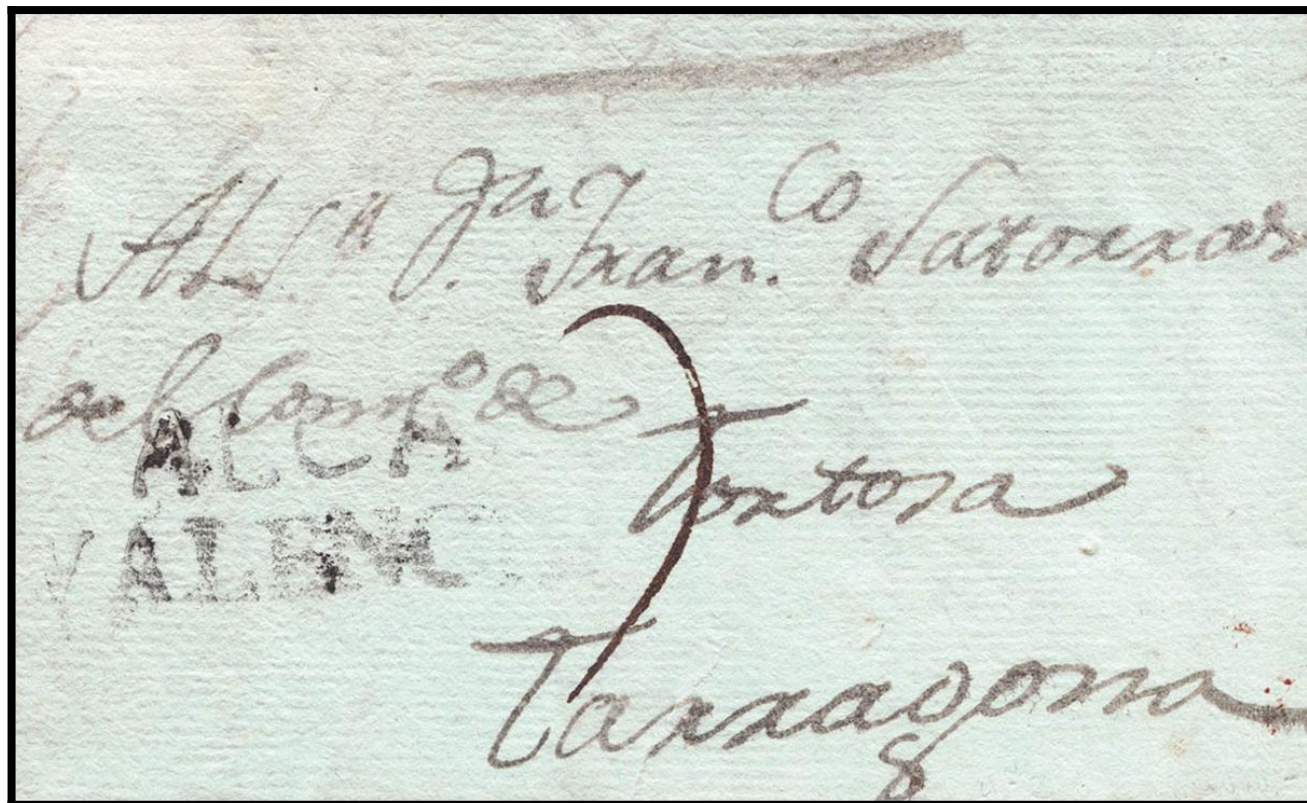 Al Sr. Dn. Jph. Fran.co Satorras
del Com.o de
ALCA
VALENC
Tortosa
Tarragona